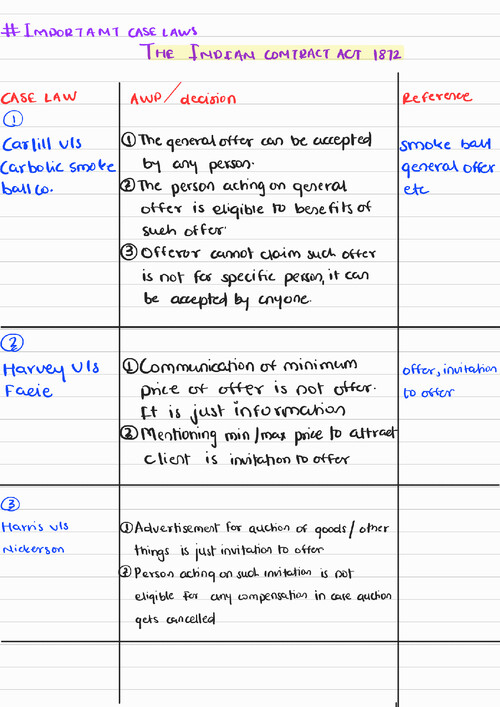 # IMPORTANT CASE LAWS
THE INDIAN CONTRACT ACT 1872
CASE LAW
AWP/decision
Reference
①
Carlill v/s
Carbolic smoke
ball co.
① The general offer can be accepted
by any person.
② The person acting on general
offer is eligible to benefits of
such offer.
③ Offeror cannot claim such offer
is not for specific person, it can
be accepted by anyone.
smoke ball
general offer
etc
②
Harvey v/s
Facie
① Communication of minimum
price of offer is not offer.
It is just information
② Mentioning min/max price to attract
client is invitation to offer
offer, invitation
to offer
③
Harris v/s
Nickerson
① Advertisement for auction of goods/other
things is just invitation to offer
② Person acting on such invitation is not
eligible for any compensation in case auction
gets cancelled